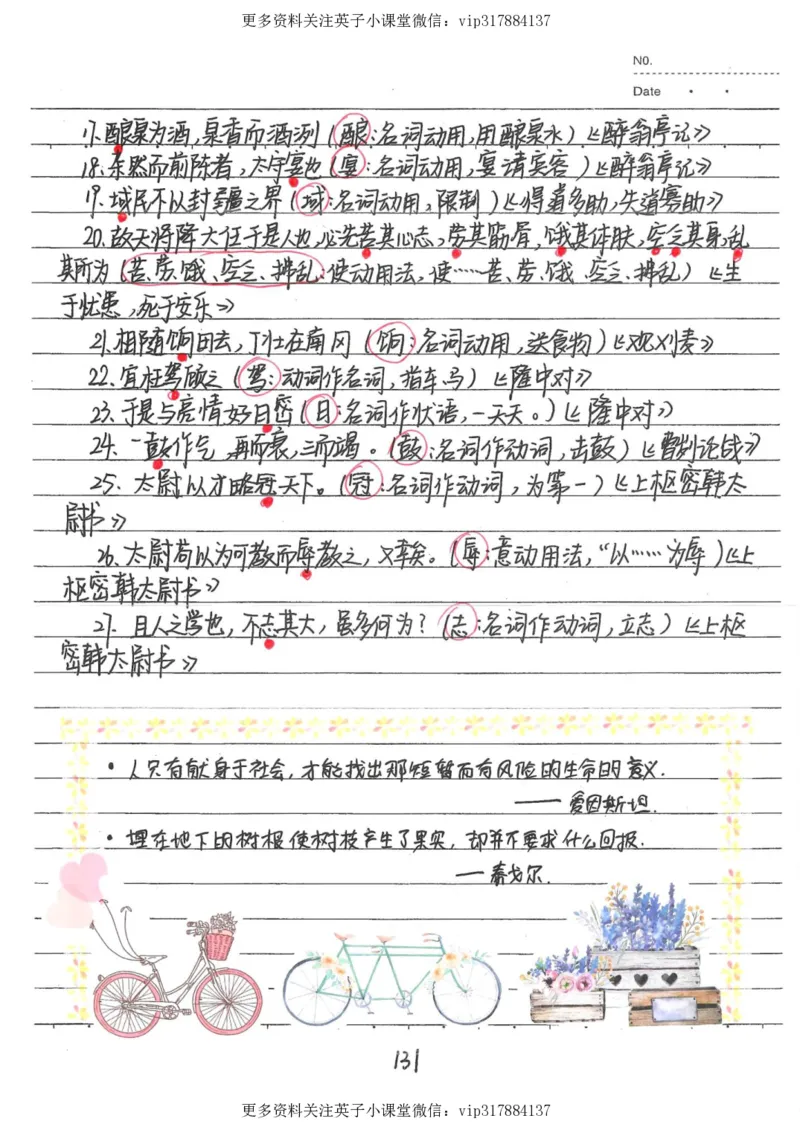 更多资料关注英子小课堂微信：vip317884137
NO.
Date
17.酿泉为酒，泉香而酒洌（酿：名词动用，用酿泉水）《醉翁亭记》
18.杂然而前陈者，太守宴也（宴：名词动用，宴请宾客）《醉翁亭记》
19.域民不以封疆之界（域：名词动用，限制）《得道多助，失道寡助》
20.故天将降大任于是人也，必先苦其心志，劳其筋骨，饿其体肤，空乏其身，乱
其所为（苦、劳、饿、空乏、拂乱：使动用法，使……苦、劳、饿、空乏、拂乱）《生
于忧患，死于安乐》
21.相随饷田去，丁壮在南冈（饷：名词动用，送食物）《观刈麦》
22.宜枉驾顾之（驾：动词作名词，指车马）《隆中对》
23.于是与亮情好日密（日：名词作状语，一天天。）《隆中对》
24.一鼓作气，再而衰，三而竭。（鼓：名词作动词，击鼓）《曹刿论战》
25.太尉以才略冠天下。（冠：名词作动词，为第一）《上枢密韩太
尉书》
26.太尉苟以为可教而辱教之，又幸矣。（辱：意动用法，“以……为辱）《上
枢密韩太尉书》
27.且人之学也，不志其大，虽多何为？（志：名词作动词，立志）《上枢
密韩太尉书》
• 人只有献身于社会，才能找出那短暂而有风险的生命的意义.
——爱因斯坦.
• 埋在地下的树根使树枝产生了果实，却并不要求什么回报.
—泰戈尔.
131
更多资料关注英子小课堂微信：vip317884137